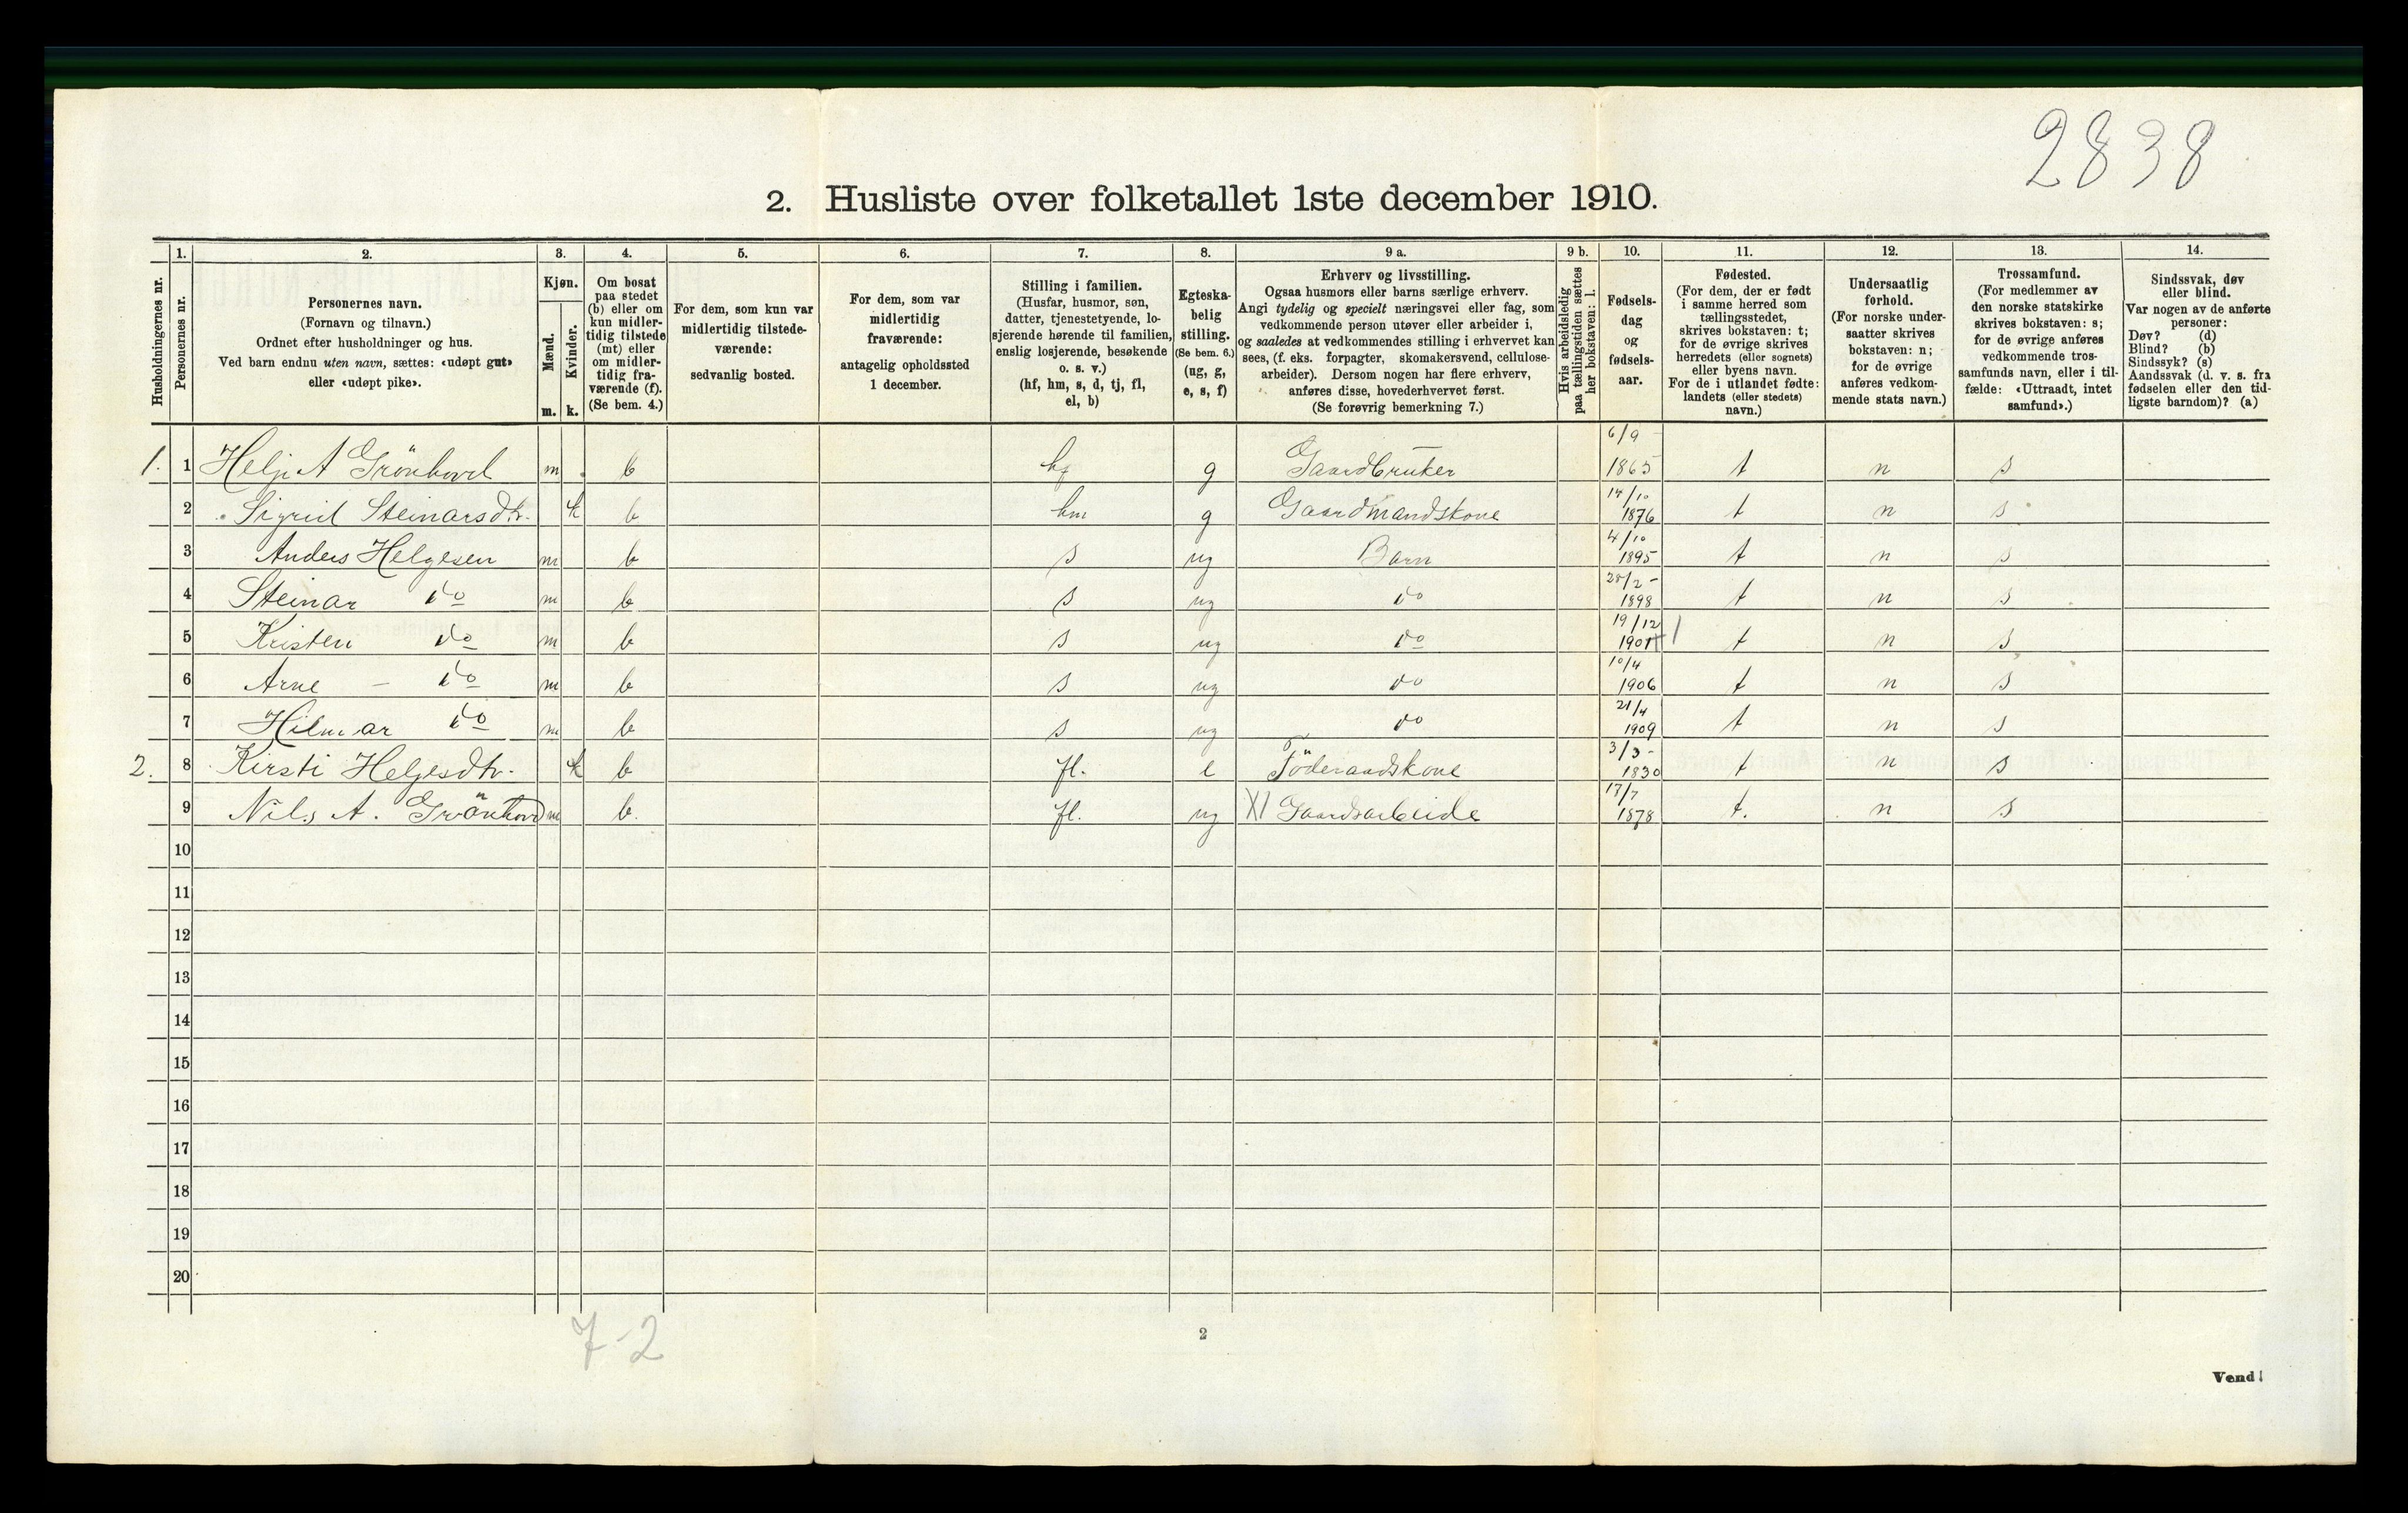 2838
2. Husliste over folketallet 1ste december 1910.
Husholdningernes nr.
1.
Personernes nr.
2.
Personernes navn.
(Fornavn og tilnavn.)
Ordnet efter husholdninger og hus.
Ved barn endnu uten navn, sættes: «udøpt gut»
eller «udøpt pike».
3.
Kjøn.
Mænd.
Kvinder.
m. k.
4.
Om bosat
paa stedet
(b) eller om
kun midler-
tidig tilstede
(mt) eller
om midler-
tidig fra-
værende (f).
(Se bem. 4.)
5.
For dem, som kun var
midlertidig tilstede-
værende:
sedvanlig bosted.
6.
For dem, som var
midlertidig
fraværende:
antagelig opholdssted
1 december.
7.
Stilling i familien.
(Husfar, husmor, søn,
datter, tjenestetyende, lo-
sjerende hørende til familien,
enslig losjerende, besøkende
o. s. v.)
(hf, hm, s, d, tj, fl,
el, b)
8.
Egteska-
belig
stilling.
(Se bem. 6.)
(ug, g,
e, s, f)
9 a.
Erhverv og livsstilling.
Ogsaa husmors eller barns særlige erhverv.
Angi tydelig og specielt næringsvei eller fag, som
vedkommende person utøver eller arbeider i,
og saaledes at vedkommendes stilling i erhvervet kan
sees, (f. eks. forpagter, skomakersvend, cellulose-
arbeider). Dersom nogen har flere erhverv,
anføres disse, hovederhvervet først.
(Se forøvrig bemerkning 7.)
9 b.
Hvis arbeidsledig
paa tællingstiden sættes
her bokstaven: l.
10.
Fødsels-
dag
og
fødsels-
aar.
11.
Fødested.
(For dem, der er født
i samme herred som
tællingsstedet,
skrives bokstaven: t;
for de øvrige skrives
herredets (eller sognets)
eller byens navn.
For de i utlandet fødte:
landets (eller stedets)
navn.)
12.
Undersaatlig
forhold.
(For norske under-
saatter skrives
bokstaven: n;
for de øvrige
anføres vedkom-
mende stats navn.)
13.
Trossamfund.
(For medlemmer av
den norske statskirke
skrives bokstaven: s;
for de øvrige anføres
vedkommende tros-
samfunds navn, eller i til-
fælde: «Uttraadt, intet
samfund».)
14.
Sindssvak, døv
eller blind.
Var nogen av de anførte
personer:
Døv? (d)
Blind? (b)
Sindssyk? (s)
Aandssvak (d. v. s. fra
fødselen eller den tid-
ligste barndom)? (a)
1. 1 Helje A Grönhovd m b hf g Gaardbruker 6/9 1865 t n s
2 Sigrid Steinarsdtr. k b hm g Gaardmandskone 14/10 1876 t n s
3 Anders Helgesen m b s ug Barn 4/10 1895 t n s
4 Steinar do m b s ug do 28/2 1898 t n s
5 Kristen do m b s ug do 19/12 1901 t n s
6 Arne - do m b s ug do 10/4 1906 t n s
7 Hilmar do m b s ug do 21/4 1909 t n s
2. 8 Kirsti Helgesdtr. k b fl. e Föderaadskone 3/3 1830 t n s
9 Nils A. Grönhovd m b. fl. ug XI Gaardsarbeide 17/7 1878 t. n s
10
11
12
13
14
15
16
17
18
19
20
7-2
2
Vend!